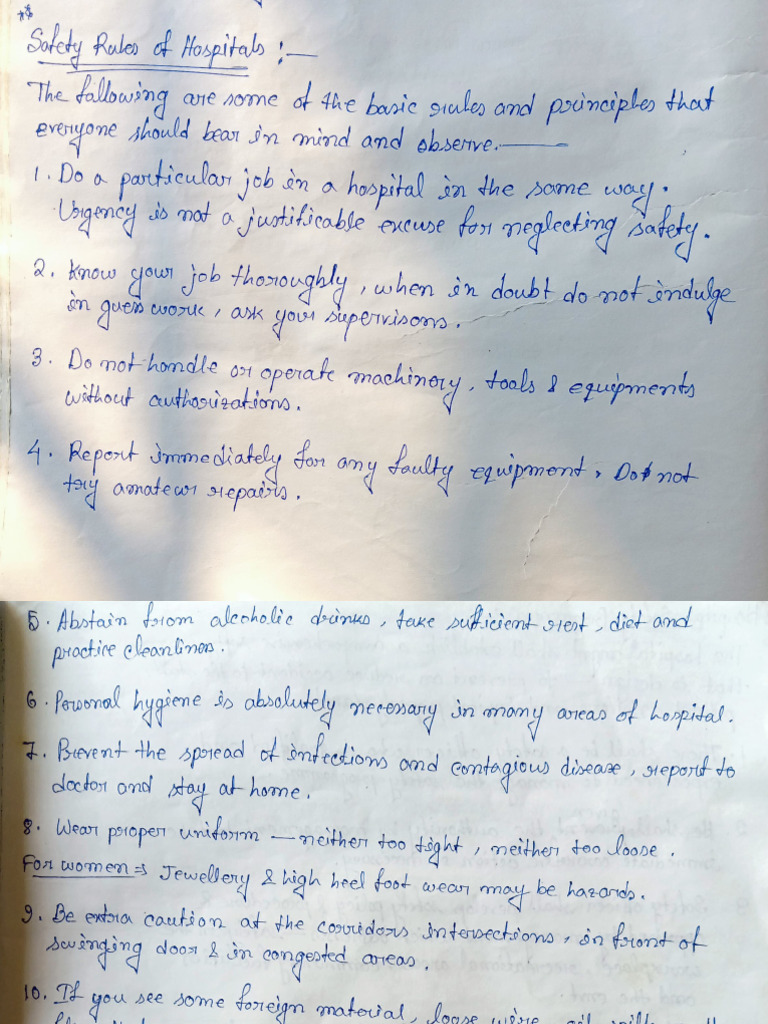 **
Safety Rules of Hospitals :—
The following are some of the basic rules and principles that
everyone should bear in mind and observe.—
1. Do a particular job in a hospital in the same way.
Urgency is not a justificable excuse for neglecting safety.
2. Know your job thoroughly, when in doubt do not indulge
in guess work, ask your supervisons.
3. Do not handle or operate machinory, tools & equipments
without authorizations.
4. Report immediately for any faulty equipment, Do not
try amateur repairs.
5. Abstain from alcoholic drinks, take sufficient rest, diet and
practice cleanlines.
6. Personal hygiene is absolutely necessary in many areas of hospital.
7. Prevent the spread of infections and contagious disease, report to
doctor and stay at home.
8. Wear proper uniform — neither too tight, neither too loose.
For women ⇒ Jewellery & high heel foot wear may be hazards.
9. Be extra caution at the corridors intersections, in front of
swinging door & in congested areas.
10. If you see some foreign material, loose wire, oil